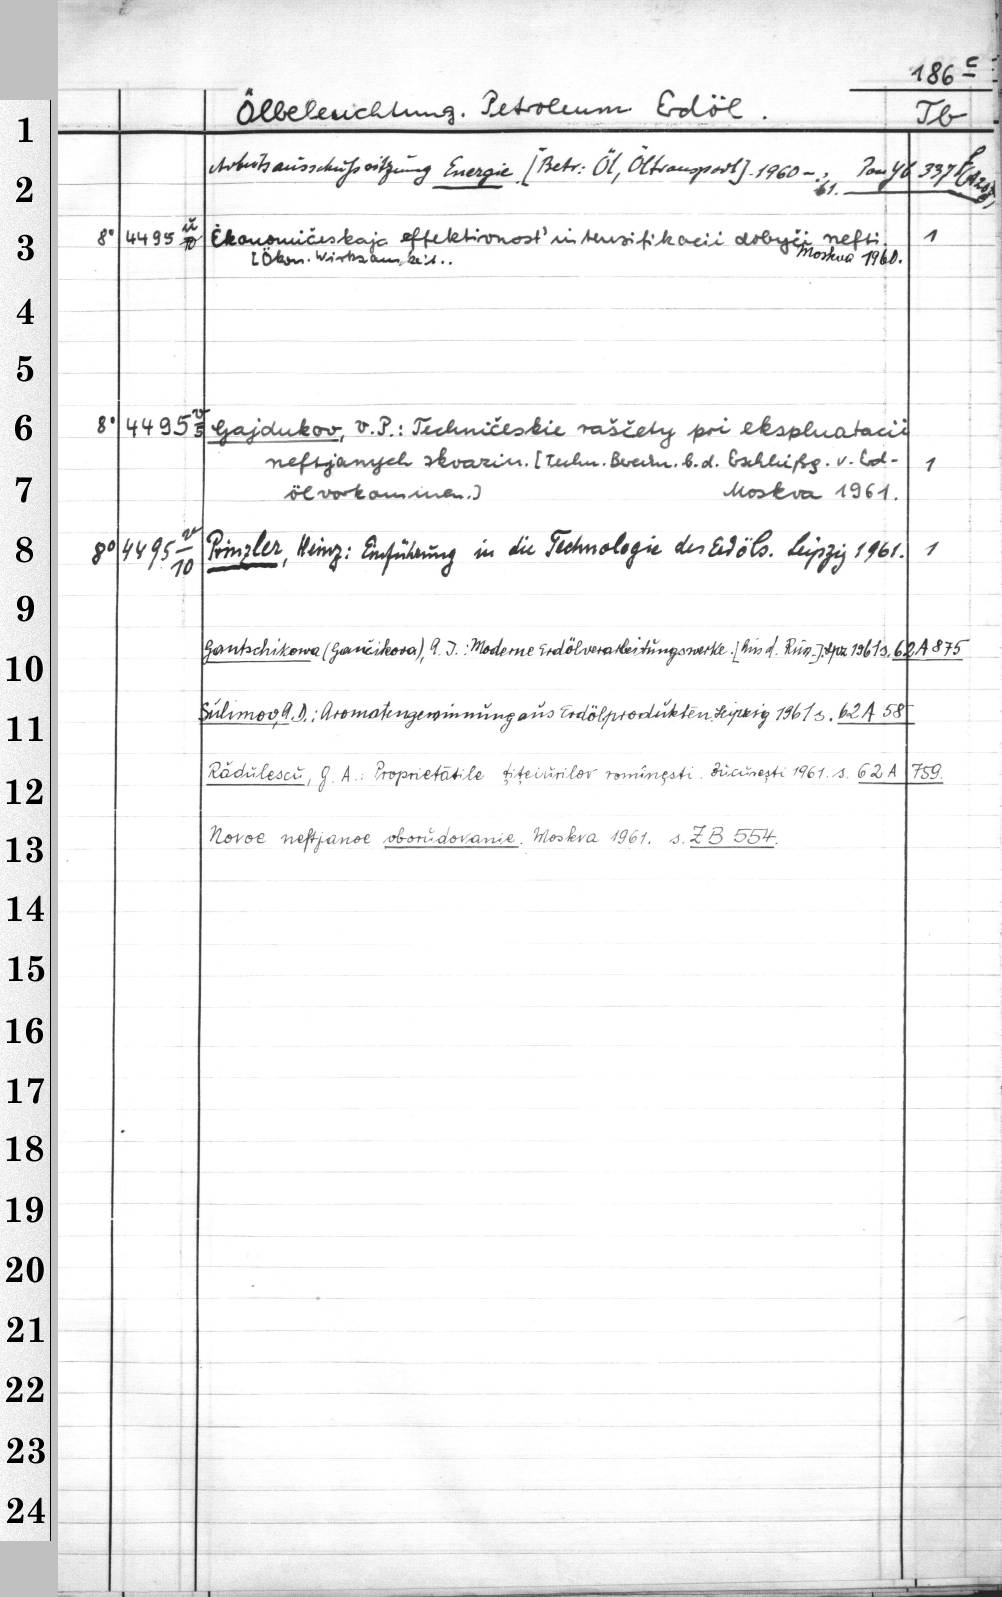 186 c
Ölbeleuchtung. Petroleum Erdöl. Tb
1
2 Arbeitsausschußsitzung Energie. [Betr: Öl, Öltransport]. 1960-61. 4b 337
3 8° 4495 Ėkonomičeskaja effektivnost' intensifikacii dobyči nefti. 1
[Ökon. Wirksamkeit.. Moskva 1960.
4
5
6 8° 4495 v/5 Gajdukov, V.P.: Techničeskie rasčety pri ekspluatacii
neftjanych skvazin. [Techn. Berechn. b. d. Erschließg. v. Erd- 1
7 ölvorkommen.] Moskva 1961.
8 8° 4495 v/10 Prinzler, Heinz: Einführung in die Technologie des Erdöls. Leipzig 1961. 1
9
10 Gantschikowa (Gančikova), G. I.: Moderne Erdölverarbeitungswerke. [Aus d. Russ.]. Lpz 1961 s. 62 A 875
11 Sulimov, A.D.: Aromatengewinnung aus Erdölprodukten. Leipzig 1961 s. 62 A 58
12 Rădulescu, G. A.: Proprietăţile ţiţeiurilor romîneşti. Bucureşti 1961. s. 62 A 759.
13 Novoe neftjanoe oborudovanie. Moskva 1961. s. ZB 554.
14
15
16
17
18
19
20
21
22
23
24